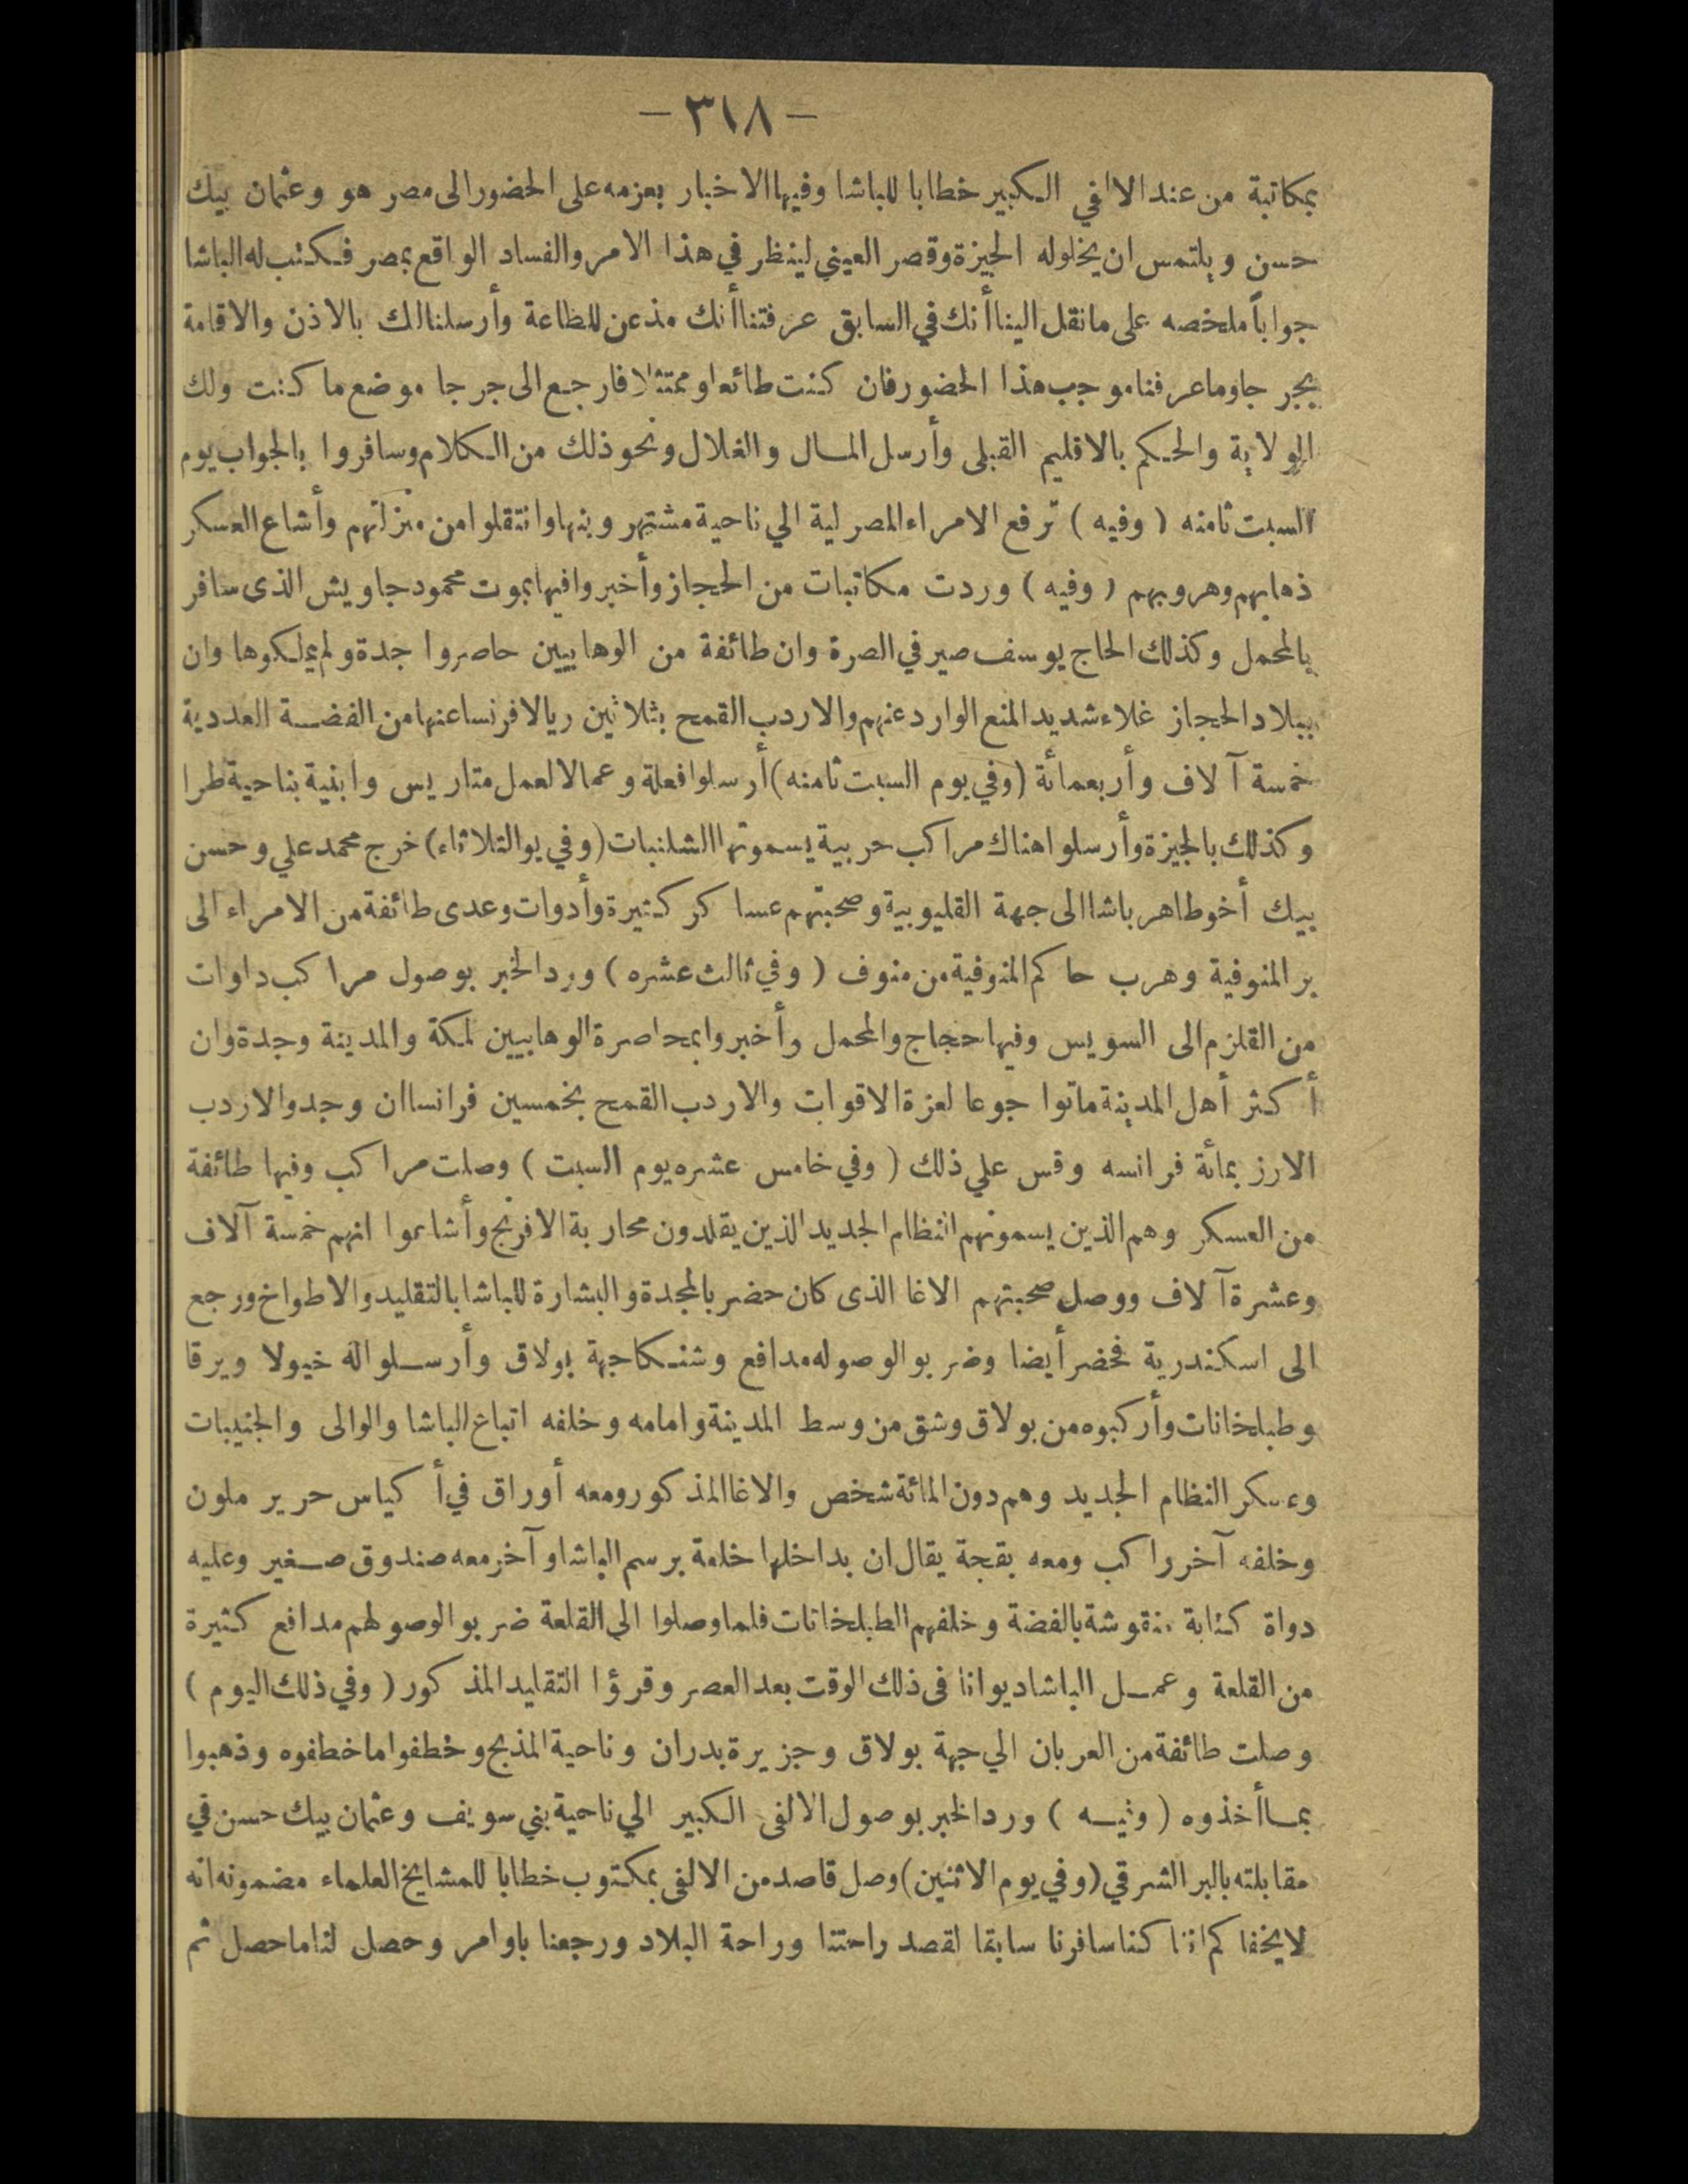 — ٣١٨ —
بمكاتبة من عند الالفي الكبير خطابا للباشا وفيها الاخبار بعزمه على الحضور الى مصر هو وعثمان بيك
حسن ويلتمس ان يخلوله الجيزة وقصر العيني لينظر في هذا الامر والفساد الواقع بمصر فكتب له الباشا
جواباً ملخصه على ما نقل الينا أنك في السابق عرفتنا أنك مذعن للطاعة وأرسلنا لك بالاذن والاقامة
بجرجا وما عرفنا موجب هذا الحضور فان كنت طائعا وممتثلا فارجع الى جرجا موضع ما كنت ولك
الولاية والحكم بالاقليم القبلى وأرسل المال والغلال ونحو ذلك من الكلام وسافروا بالجواب يوم
السبت ثامنه ( وفيه ) ترفع الامراء المصرلية الي ناحية مشتهر وبنها وانتقلوا من منزلتهم وأشاع العسكر
ذهابهم وهروبهم ( وفيه ) وردت مكاتبات من الحجاز وأخبروا فيها بموت محمود جاويش الذى سافر
بالمحمل وكذلك الحاج يوسف صيرفي الصرة وان طائفة من الوهابيين حاصروا جدة ولم يملكوها وان
ببلاد الحجاز غلاء شديد المنع الوارد عنهم والاردب القمح بثلاثين ريالا فرنسا عنها من الفضة العددية
خمسة آلاف وأربعمائة ( وفي يوم السبت ثامنه ) أرسلوا فعلة وعمالا لعمل متاريس وابنية بناحية طرا
وكذلك بالجيزة وأرسلوا هناك مراكب حربية يسمونها الشلنبات ( وفي يوا لثلاثاء ) خرج محمد علي وحسن
بيك أخو طاهر باشا الى جهة القليوبية وصحبتهم عساكر كثيرة وأدوات وعدى طائفة من الامراء الى
بر المنوفية وهرب حاكم المنوفية من منوف ( وفي ثالث عشره ) ورد الخبر بوصول مراكب داوات
من القلزم الى السويس وفيها حجاج والمحمل وأخبروا بمحاصرة الوهابيين لمكة والمدينة وجدة وان
أكثر أهل المدينة ماتوا جوعا لعزة الاقوات والاردب القمح بخمسين فرانسا ان وجد والاردب
الارز بمائة فرانسه وقس علي ذلك ( وفي خامس عشره يوم السبت ) وصلت مراكب وفيها طائفة
من العسكر وهم الذين يسمونهم النظام الجديد الذين يقلدون محاربة الافرنج وأشاعوا انهم خمسة آلاف
وعشرة آلاف ووصل صحبتهم الاغا الذى كان حضر بالمجدة والبشارة للباشا بالتقليد والاطواخ ورجع
الى اسكندرية فحضر أيضا وضربوا لوصوله مدافع وشنكا جهة بولاق وأرسلوا اله خيولا ويرقا
وطبلخانات وأركبوه من بولاق وشق من وسط المدينة وامامه وخلفه اتباع الباشا والوالى والجنيبات
وعسكر النظام الجديد وهم دون المائة شخص والاغا المذكور ومعه أوراق في أكياس حرير ملون
وخلفه آخر راكب ومعه بقجة يقال ان بداخلها خلعة برسم الباشا وآخر معه صندوق صغير وعليه
دواة كتابة منقوشة بالفضة وخلفهم الطبلخانات فلما وصلوا الي القلعة ضربوا لوصولهم مدافع كثيرة
من القلعة وعمل الباشا ديوانا فى ذلك الوقت بعد العصر وقرؤا التقليد المذكور ( وفي ذلك اليوم )
وصلت طائفة من العربان الي جهة بولاق وجزيرة بدران وناحية المذبح وخطفوا ما خطفوه وذهبوا
بما أخذوه ( وفيه ) ورد الخبر بوصول الالفى الكبير الي ناحية بني سويف وعثمان بيك حسن في
مقابلته بالبر الشرقي ( وفي يوم الاثنين ) وصل قاصد من الالفى بمكتوب خطابا للمشايخ العلماء مضمونه انه
لا يخفاكم اننا كنا سافرنا سابقا لقصد راحتنا وراحة البلاد ورجعنا باوامر وحصل لنا ما حصل ثم